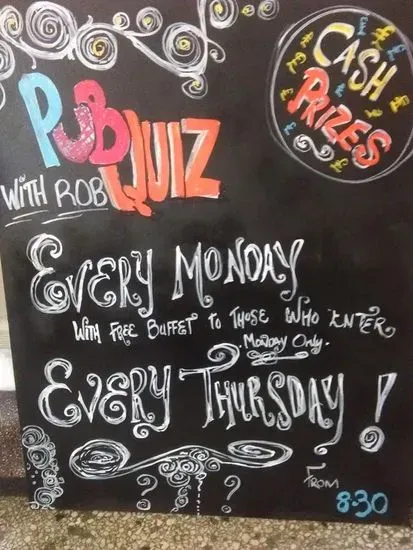 PUB
QUIZ
WITH ROB
CASH
PRIZES
EVERY MONDAY
WITH FREE BUFFET TO THOSE WHO ENTER
MONDAY ONLY.
EVERY THURSDAY!
? ?
FROM
8.30